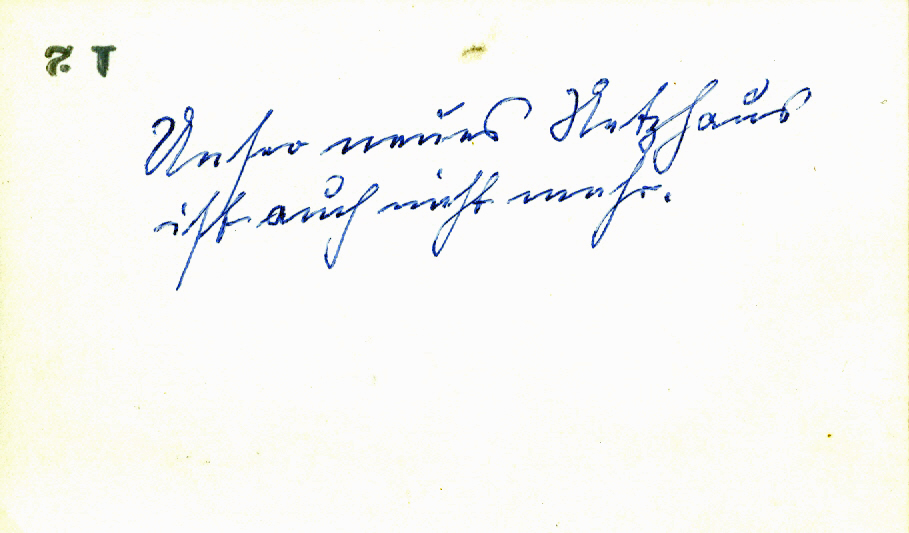 Unser neues Netzhaus
ist auch nicht mehr.